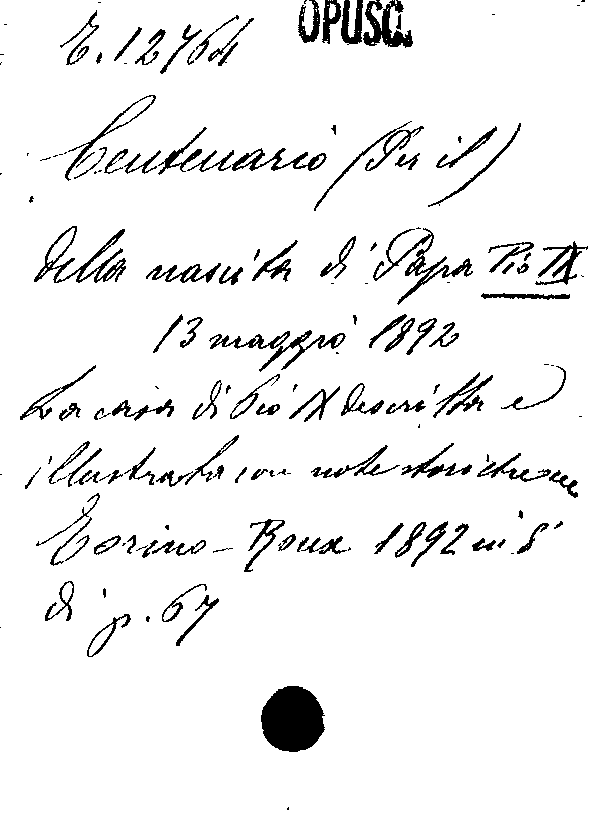 E.12764 OPUSC.
Centenario (Per il)
della nascita di Papa Pio IX
13 maggio 1892
La casa di Pio IX descritta e
illustrata con note storiche
Torino - Roux 1892 in 8°
di p. 67